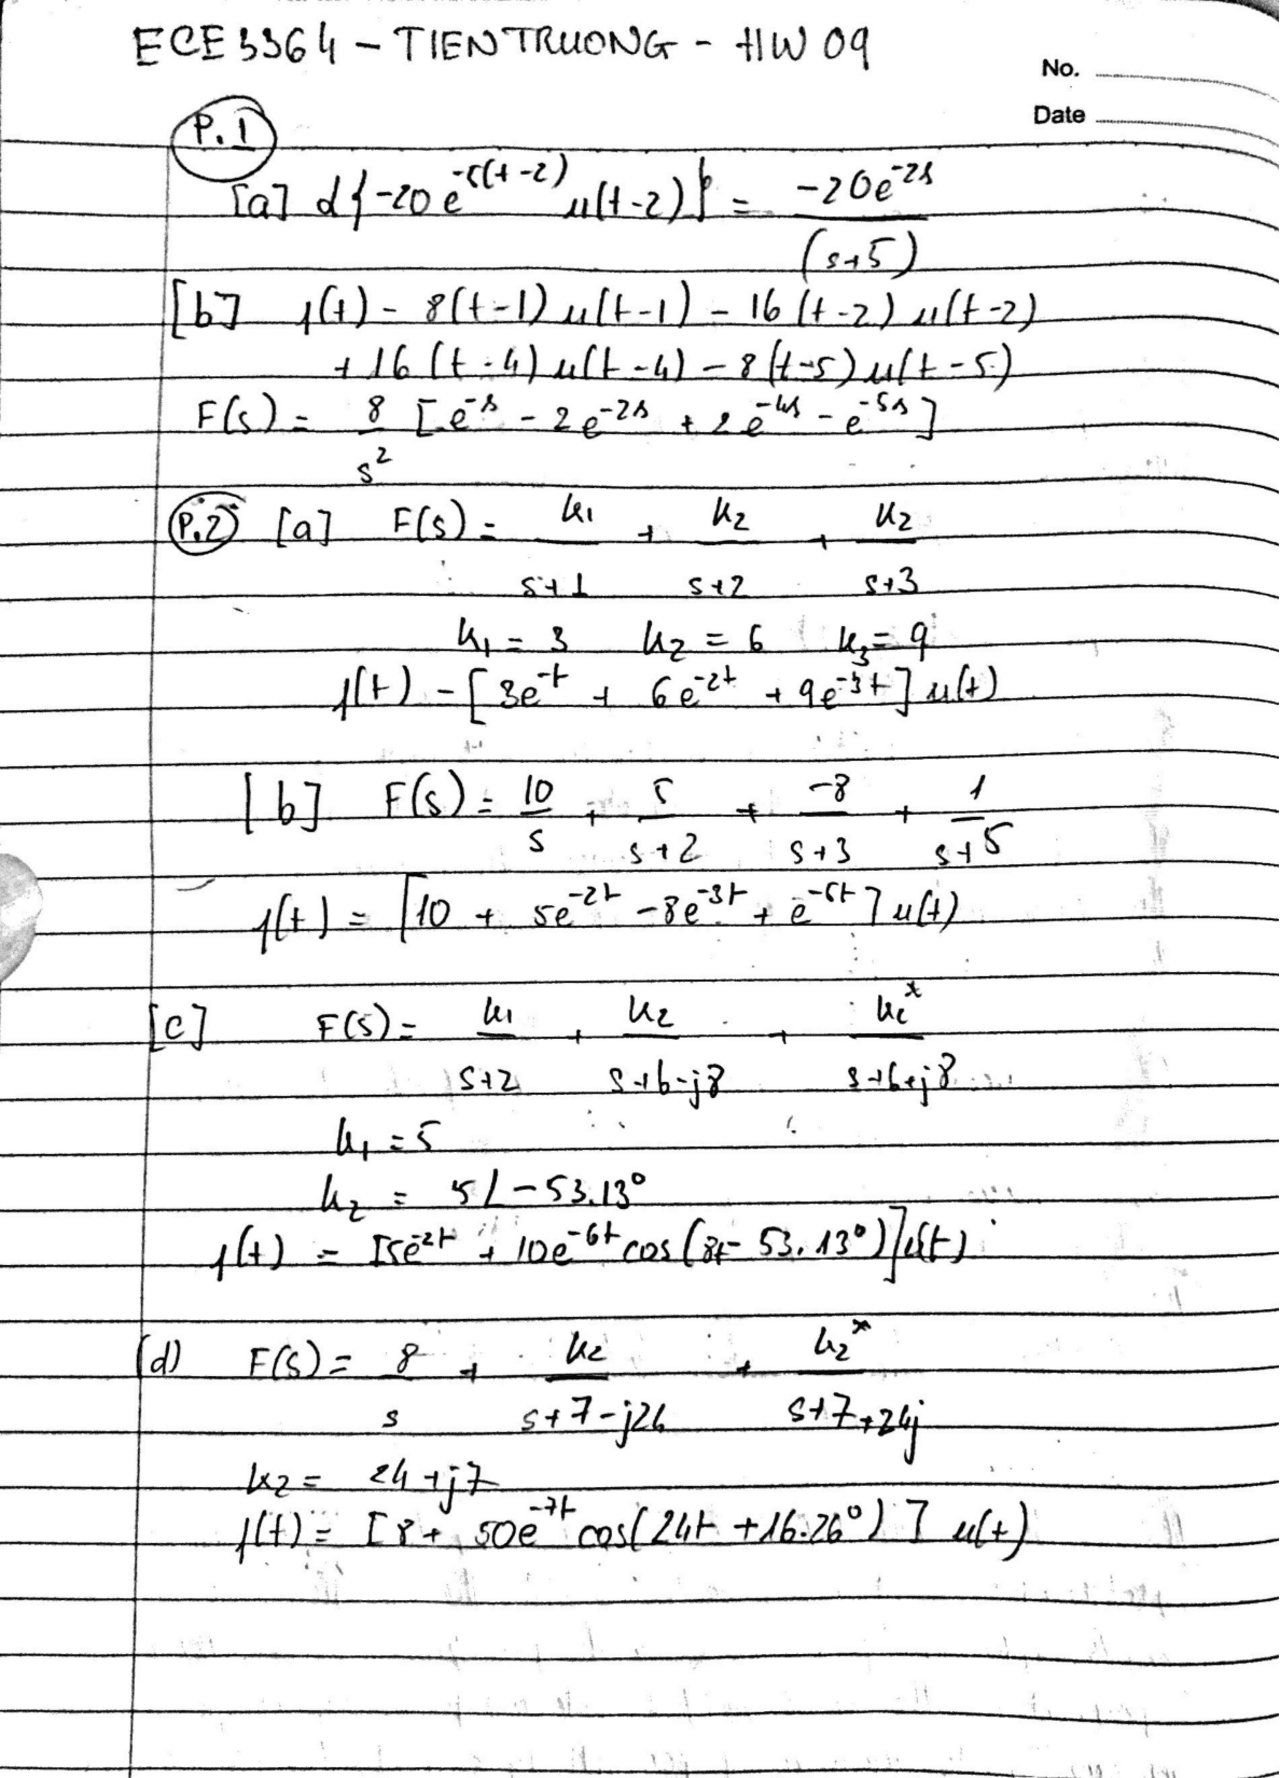 ECE 3364 - TIEN TRUONG - HW 09
No.
Date
P.1
[a] L{-20e^{-5(t-2)} u(t-2)} = -20e^{-2s} / (s+5)
[b] f(t) = 8(t-1) u(t-1) - 16(t-2) u(t-2)
+ 16(t-4) u(t-4) - 8(t-5) u(t-5)
F(s) = 8/s^2 [e^{-s} - 2e^{-2s} + 2e^{-4s} - e^{-5s}]
P.2 [a] F(s) = k1/(s+1) + k2/(s+2) + k2/(s+3)
k1 = 3 k2 = 6 k3 = 9
f(t) = [3e^{-t} + 6e^{-2t} + 9e^{-3t}] u(t)
[b] F(s) = 10/s + 5/(s+2) + -8/(s+3) + 1/(s+5)
f(t) = [10 + 5e^{-2t} - 8e^{-3t} + e^{-5t}] u(t)
[c] F(s) = k1/(s+2) + k2/(s+6-j8) + k2*/(s+6+j8)
k1 = 5
k2 = 5∠-53.13°
f(t) = [5e^{-2t} + 10e^{-6t} cos(8t - 53.13°)] u(t)
(d) F(s) = 8/s + k2/(s+7-j24) + k2*/(s+7+24j)
k2 = 24 + j7
f(t) = [8 + 50e^{-7t} cos(24t + 16.26°)] u(t)